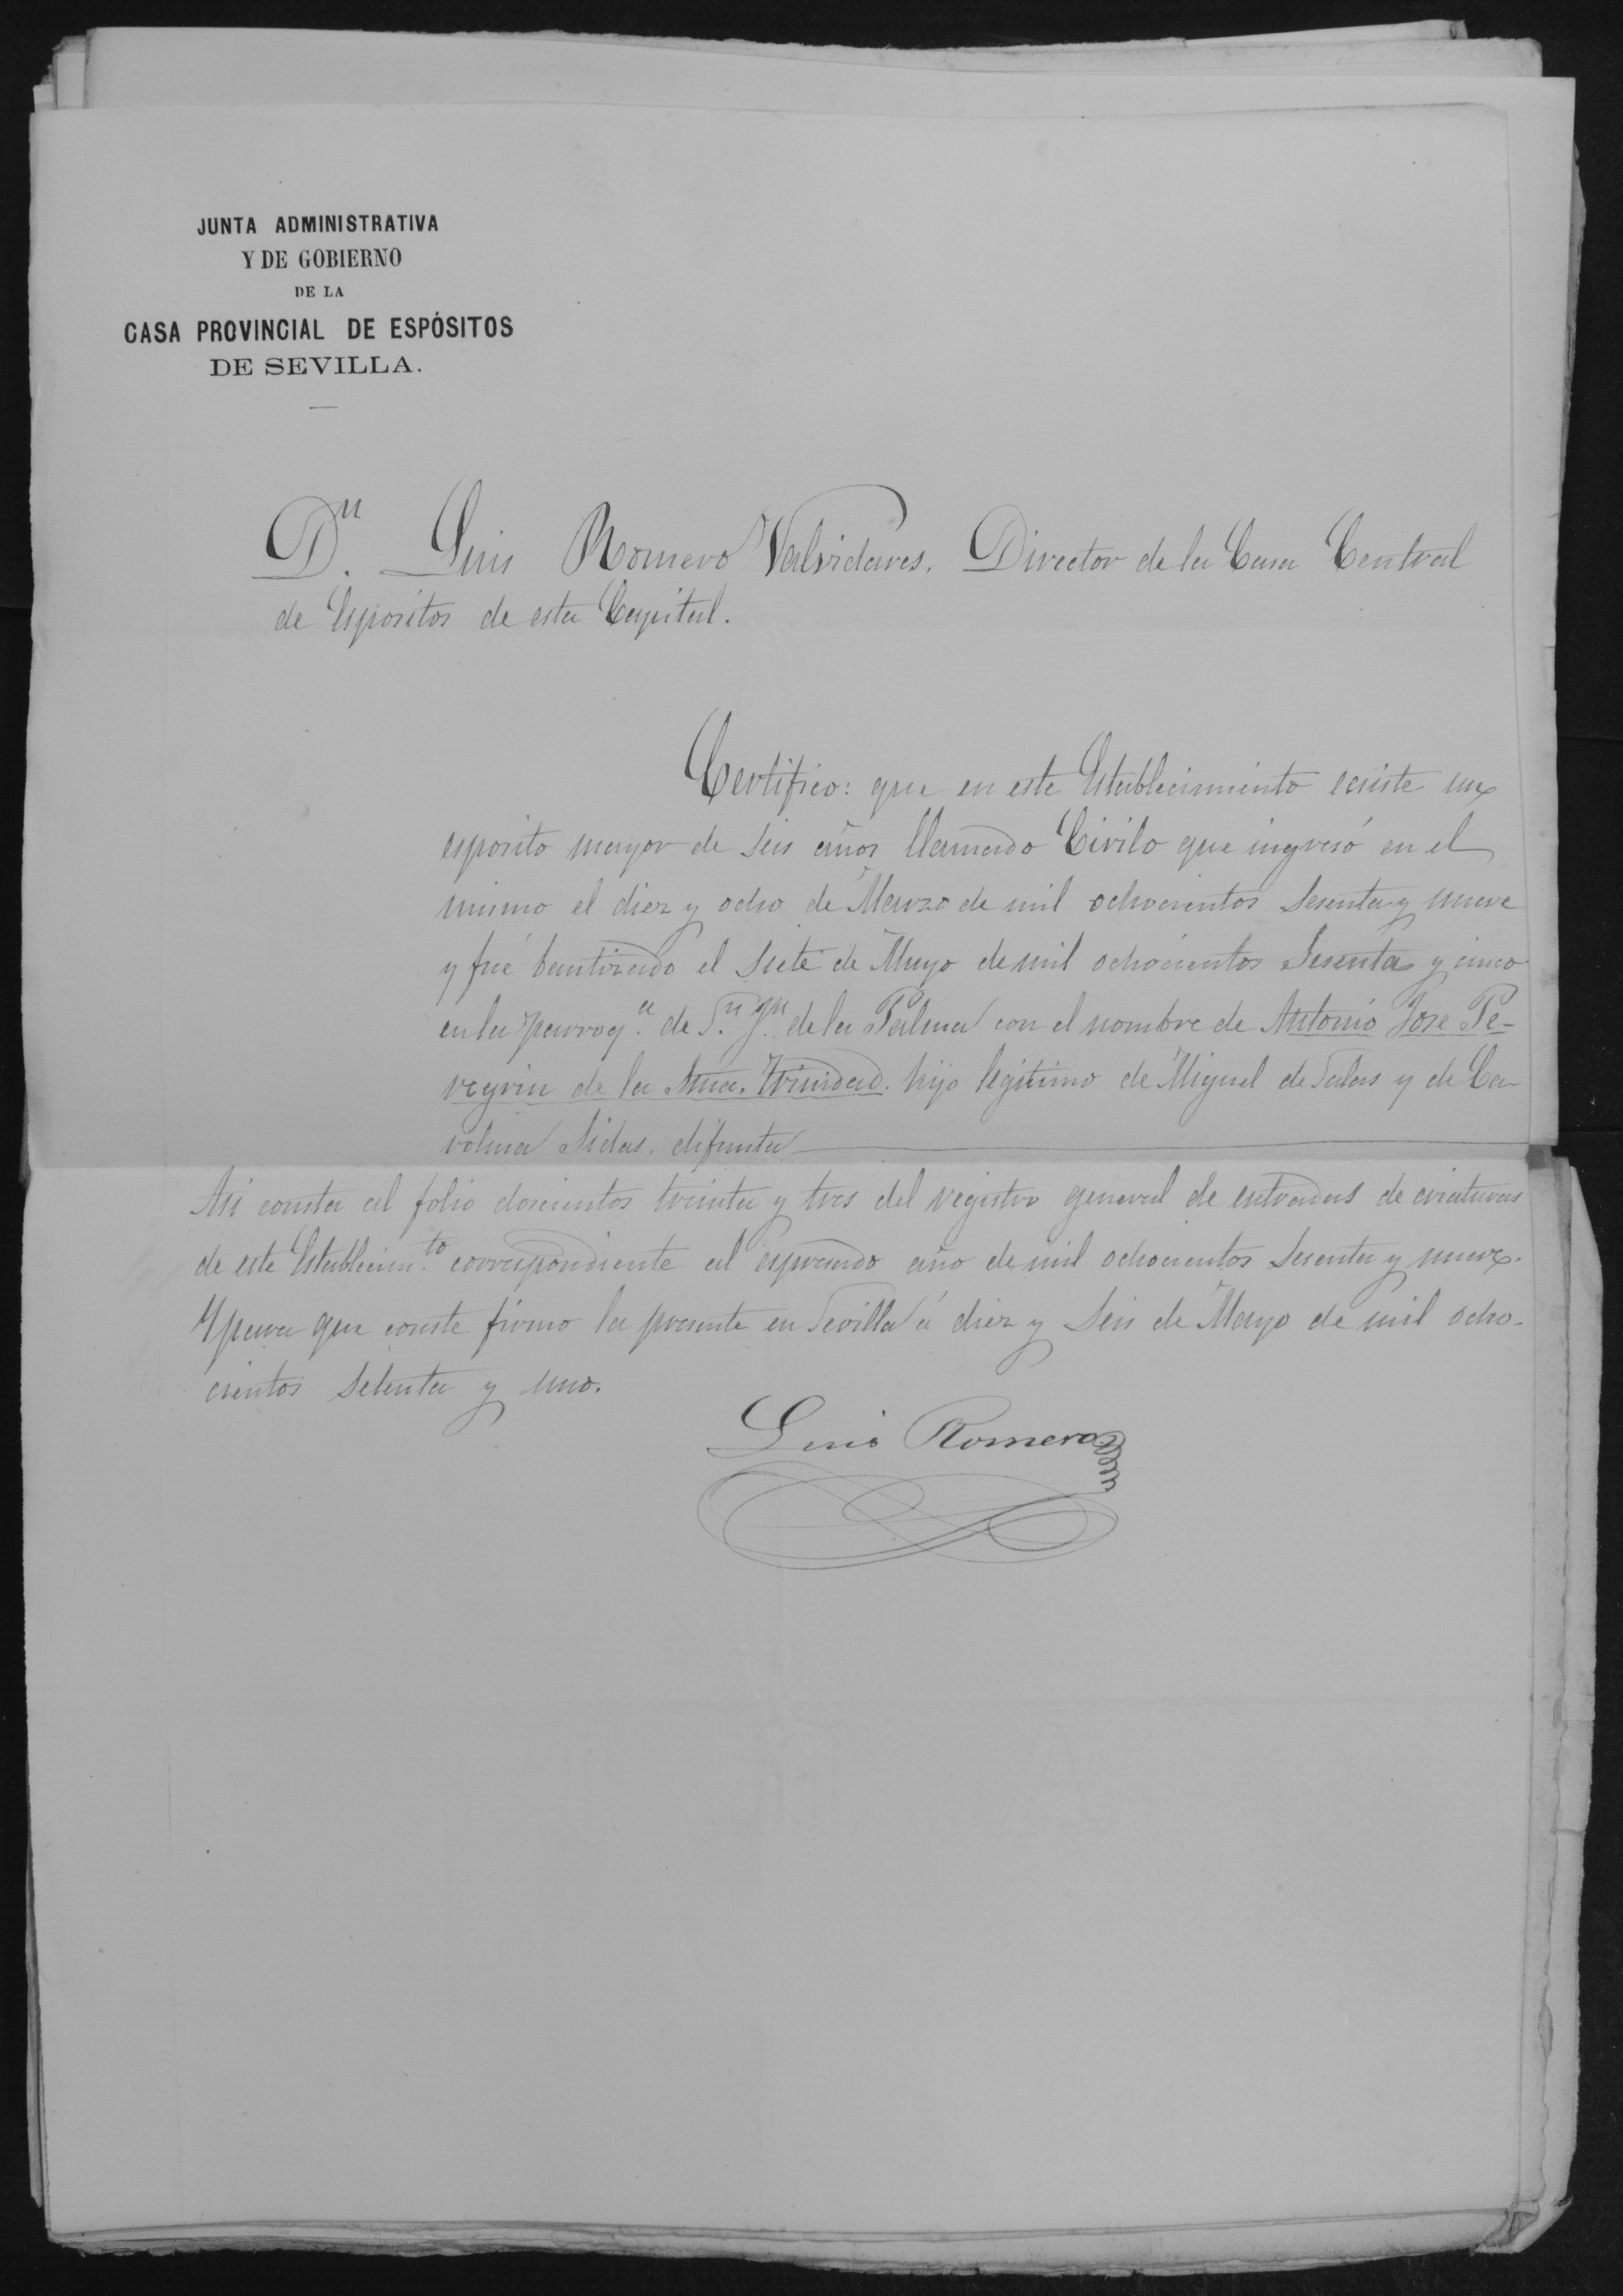 JUNTA ADMINISTRATIVA
Y DE GOBIERNO
DE LA
CASA PROVINCIAL DE ESPÓSITOS
DE SEVILLA.
Dn. Luis Romero Valvidares. Director de la Casa Central
de Espositos de esta Capital.
Certifico: que en este Establecimiento ecsiste un
esposito mayor de seis años llamado Cirilo que ingresó en el
mismo el diez y ocho de Marzo de mil ochocientos sesenta y nueve
y fué bautizado el siete de Mayo de mil ochocientos sesenta y cinco
en la parroq.a de S.n J.n de la Palma con el nombre de Antonio Jose Pe-
regrin de la Sma. Trinidad. hijo legitimo de Miguel de Salas y de Ca-
rolina Sidas. difunta
Asi consta al folio doscientos treinta y tres del registro general de entradas de criaturas
de este Establecim.to correspondiente al espresado año de mil ochocientos sesenta y nueve.
Y para que conste firmo la presente en Sevilla á diez y seis de Mayo de mil ocho-
cientos setenta y uno.
Luis Romero